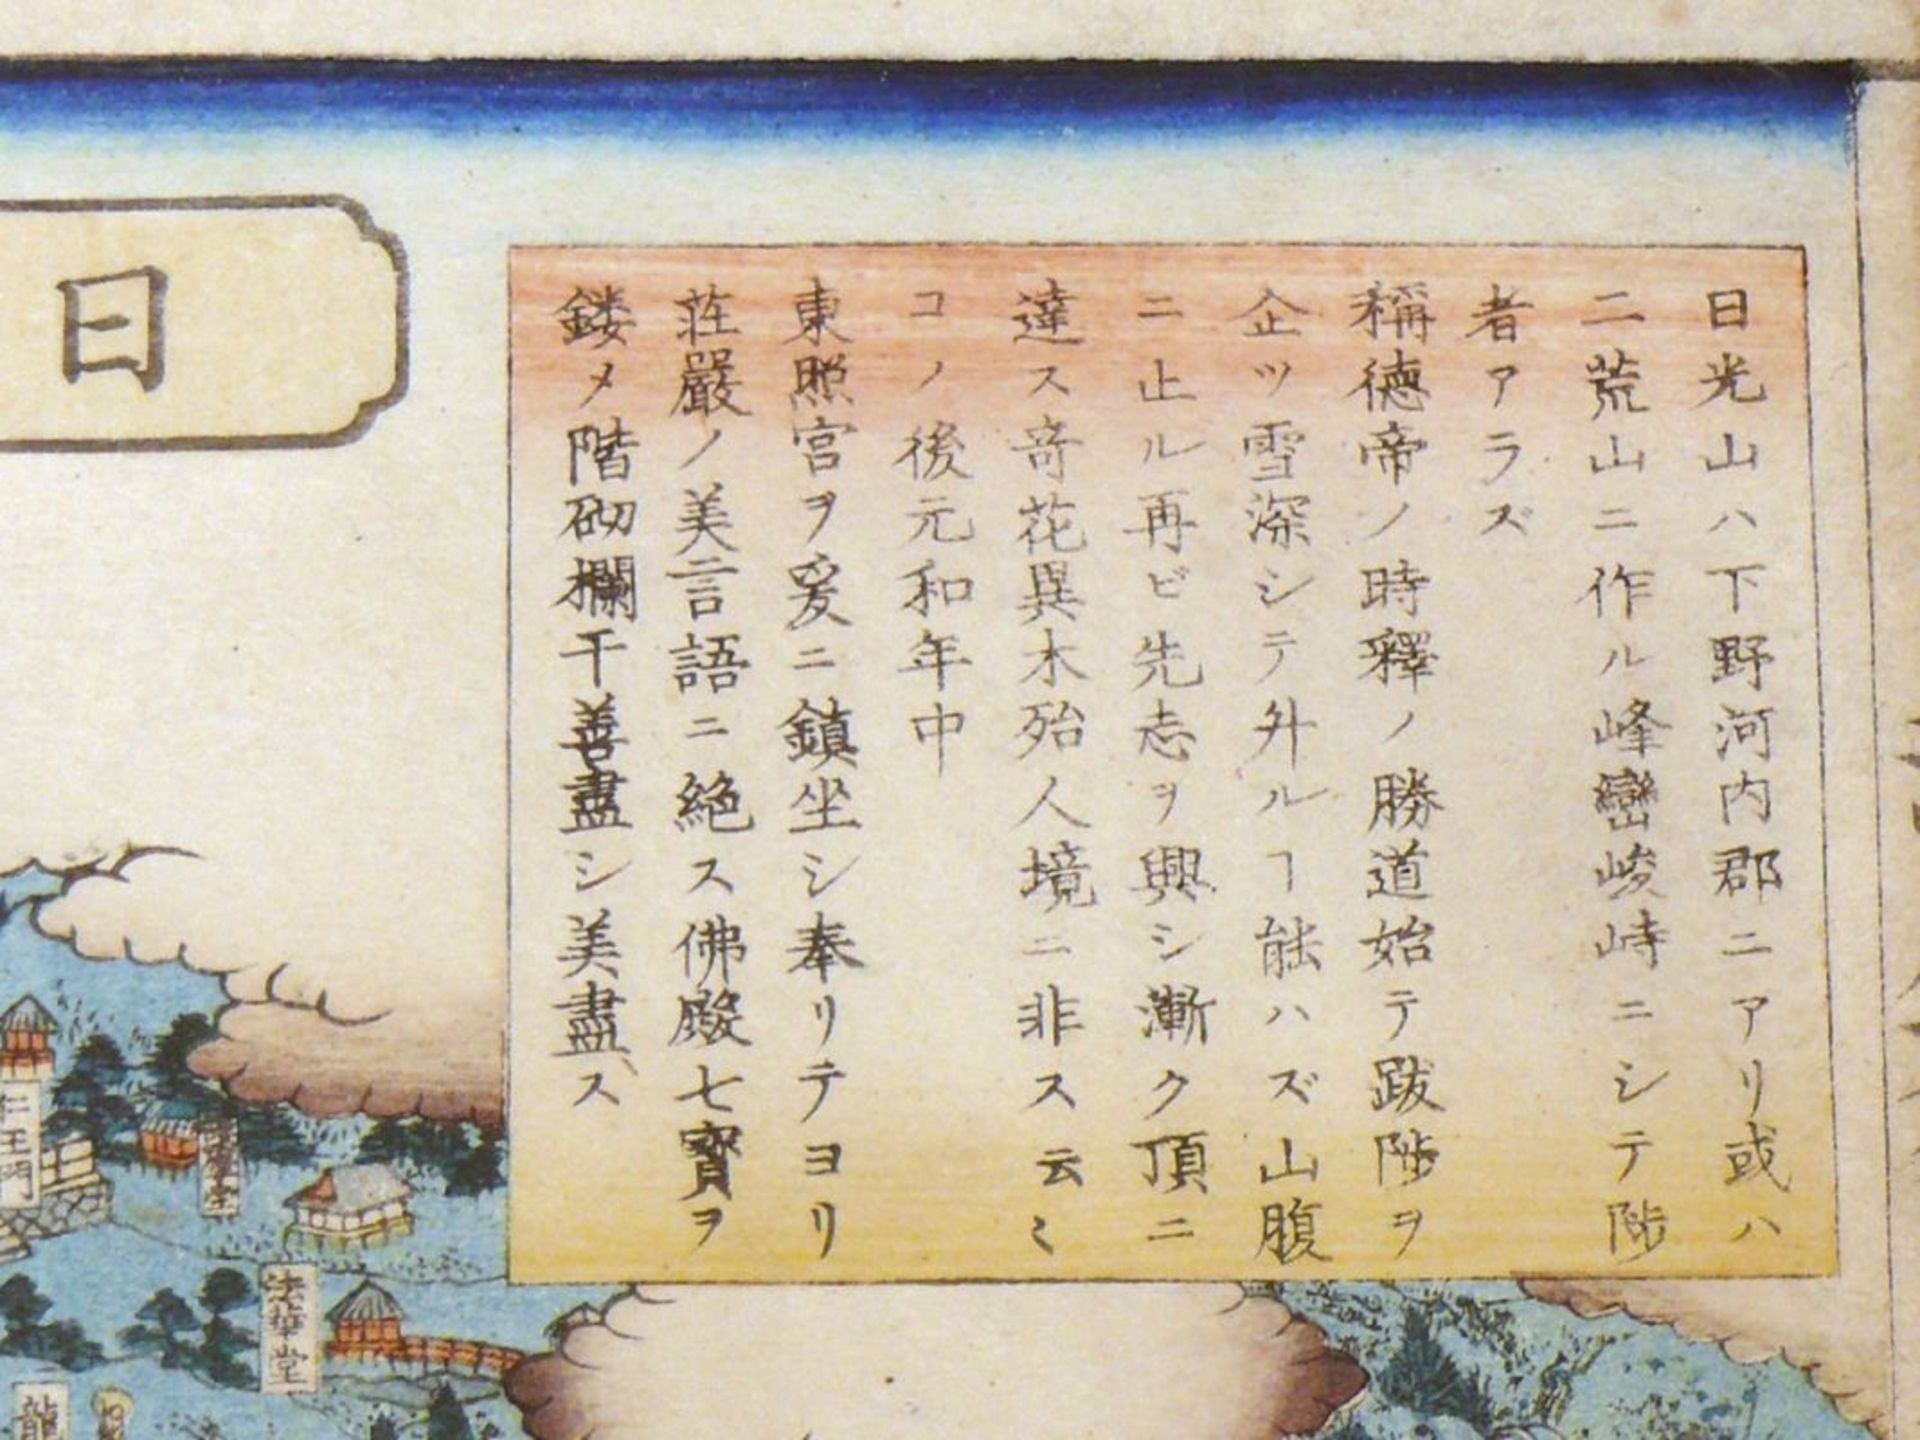 日光山ハ下野河内郡ニアリ或ハ
二荒山ニ作ル峰巒峻峙ニシテ陟
者アラズ
稱徳帝ノ時釋ノ勝道始テ跋陟ヲ
企ツ雪深シテ升ルヿ能ハズ山腹
ニ止ル再ビ先志ヲ興シ漸ク頂ニ
達ス奇花異木殆人境ニ非ス云々
コノ後元和年中
東照宮ヲ爰ニ鎮坐シ奉リテヨリ
荘嚴ノ美言語ニ絶ス佛殿七寳ヲ
鏤メ階砌欄干善盡シ美盡ス
日
仁王門
法華堂
龍